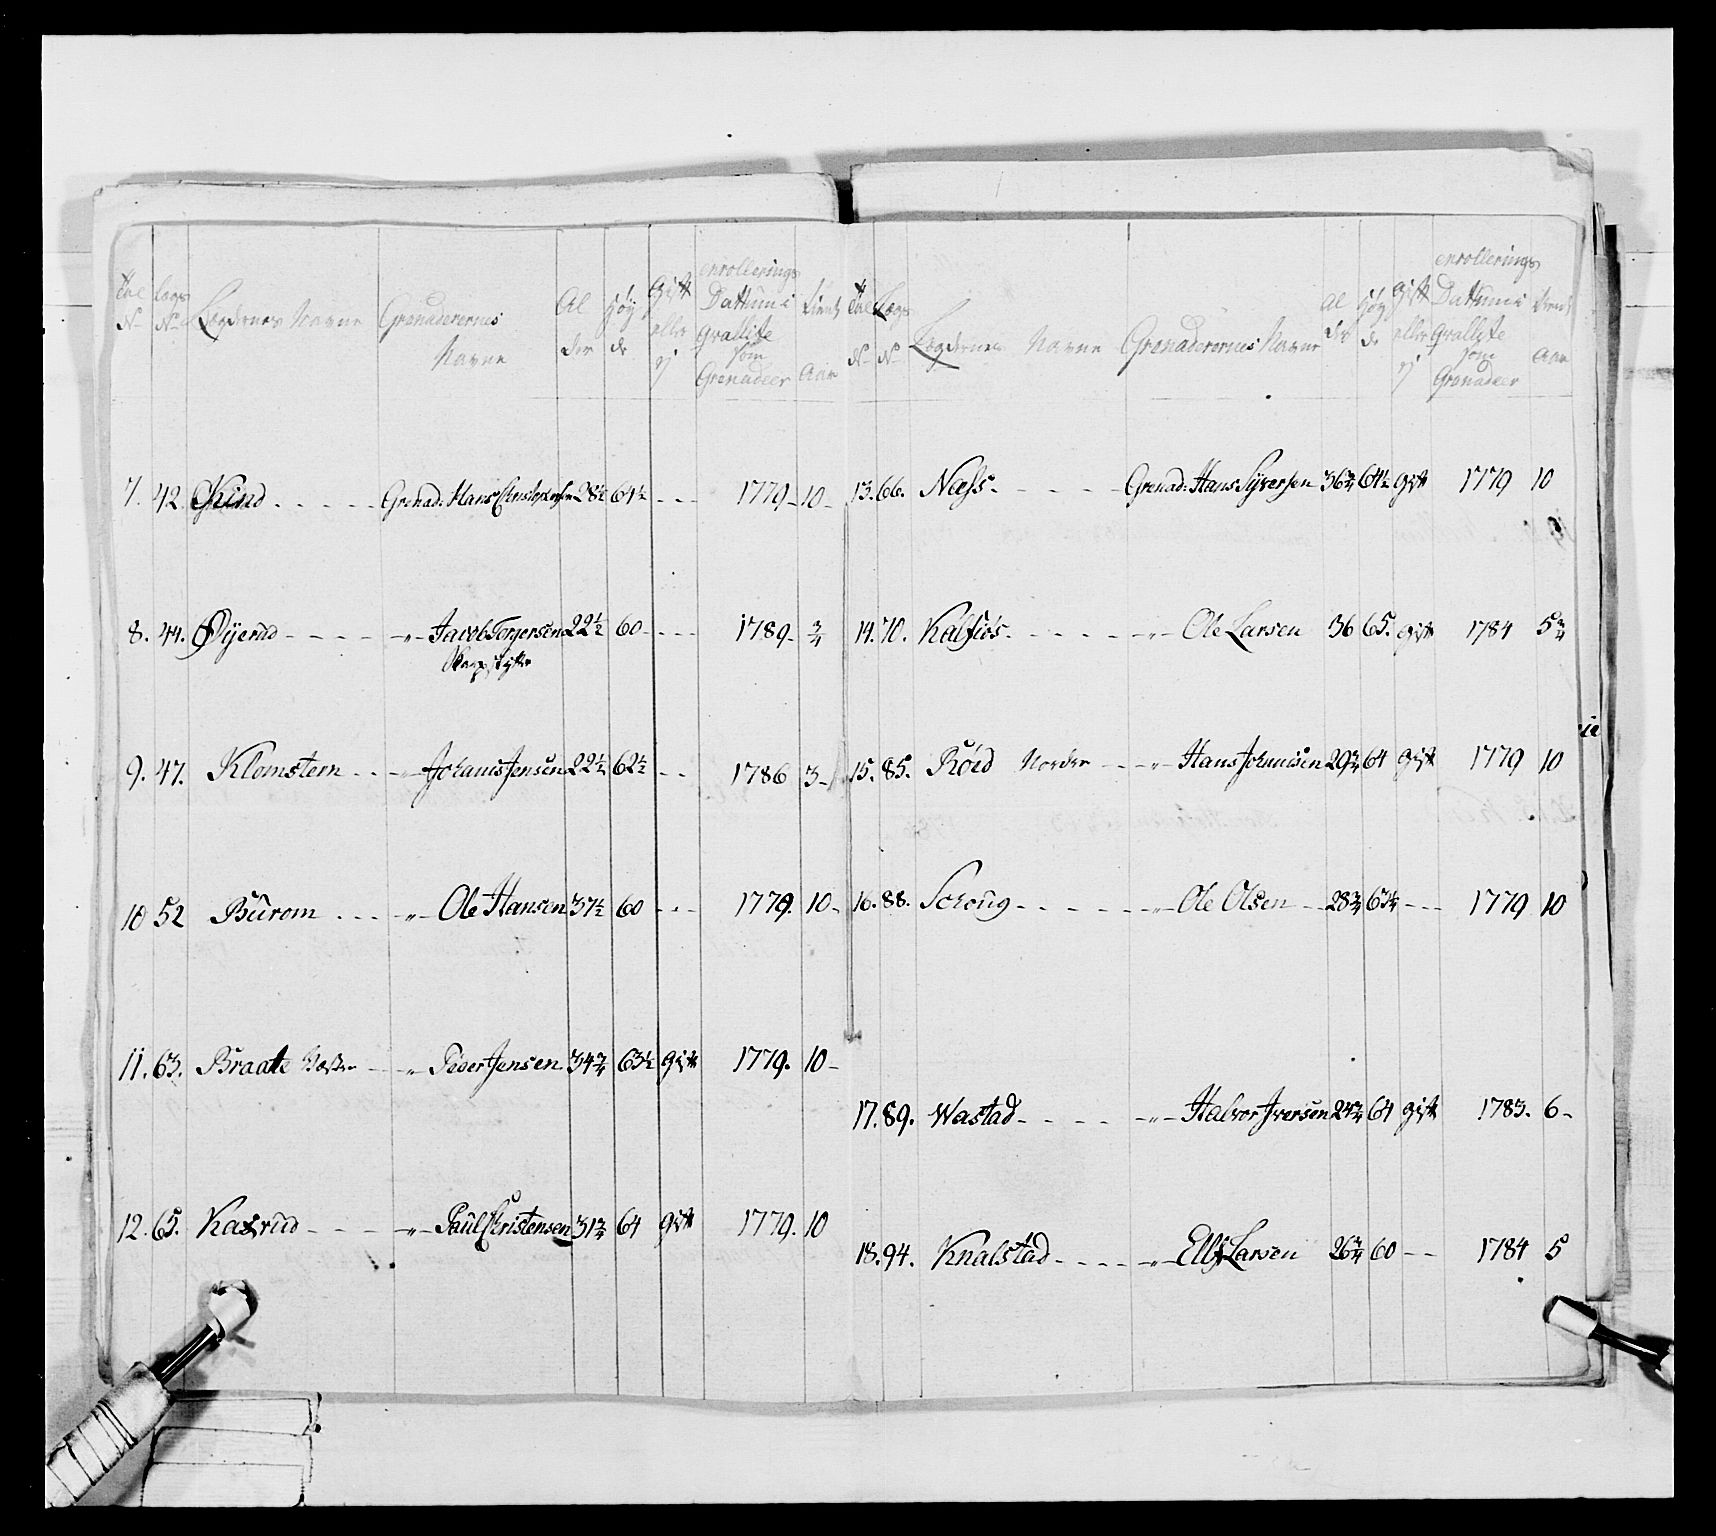 Tal N° Legs N° Lægdernes Navne Grenaderernes Navne Al der Høy de gift eller ej enrollerings Dattum i qvallite som Grenadeer tient Aar
7. 42. Kind - - - - - Grenad: Hans 28½ 64½ - - - 1779 - 10 -
8. 44. Øÿerud - - - - - „ - Jacob Torgersen 22½ 60 - - - - 1789 - ¾
9. 47. Klomstern - - - „ - Johanis Jensen 22½ 62½ - - 1786 3 -
10 52 Burom - - - „ - Ole Hansen 37½ 60 - - - 1779. 10 -
11. 63. Braate - - „ - Peder Jensen 34¾ 63½ gift 1779. 10 -
12. 65. Kaxrud - - - - „ - Paul Christensen 31¾ 64 gift 1779. 10
Tal N° Legs N° Lægdernes Navne Grenaderernes Navne Al der Høy de gift eller ej enrollerings Dattum i qvallite som Grenadeer tient Aar
13. 66. Næss - - - - - Grenad: Hans Syversen 36¾ 64½ gift 1779 10
14. 70. Kalsiøs - - - - - „ - Ole Larsen 36 65. gift 1784 5¾
15. 85. Røed Nordre - - „ - Hans Johanisen 29¾ 64 gift 1779 10
16. 88. Schoug - - - - - „ - Ole Olsen - 28¾ 63¼ - - - 1779 10
17. 89. Wastad - - - - - „ - Halvor Iversen 24¾ 64 gift 1783. 6 -
18. 94. Knalstad - - - - - „ - Ellef Larsen 26¾ 60 - - 1784 5